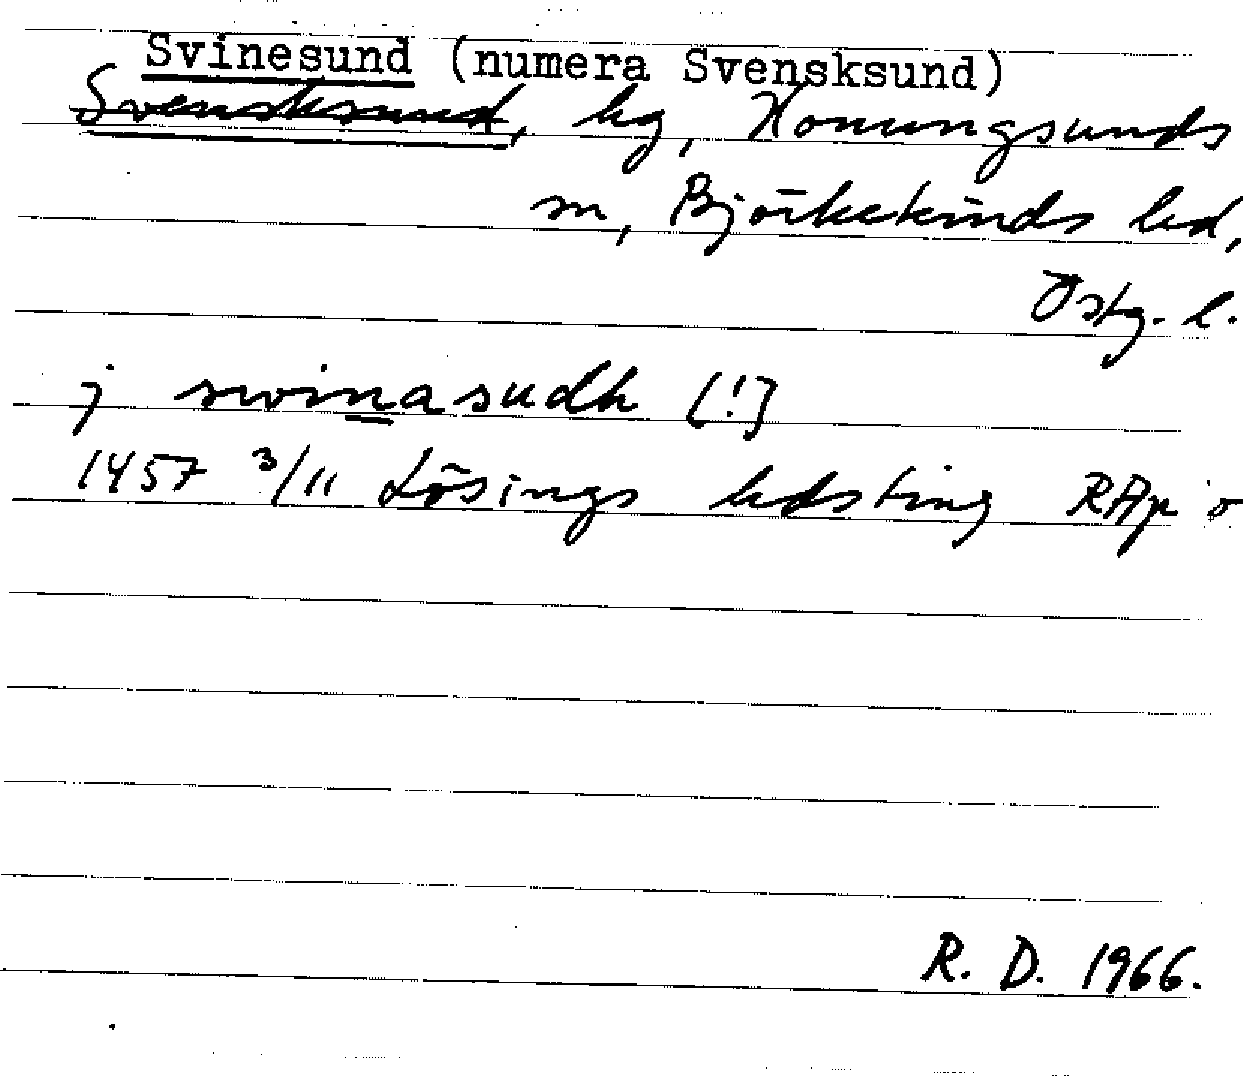 Svinesund (numera Svensksund)
Svensksund, hg, Konungsunds
sn, Björkekinds hd,
Östg. l.
j swinasudh [!]
1457 3/11 Lösings hdsting RAp or
R. D. 1966.